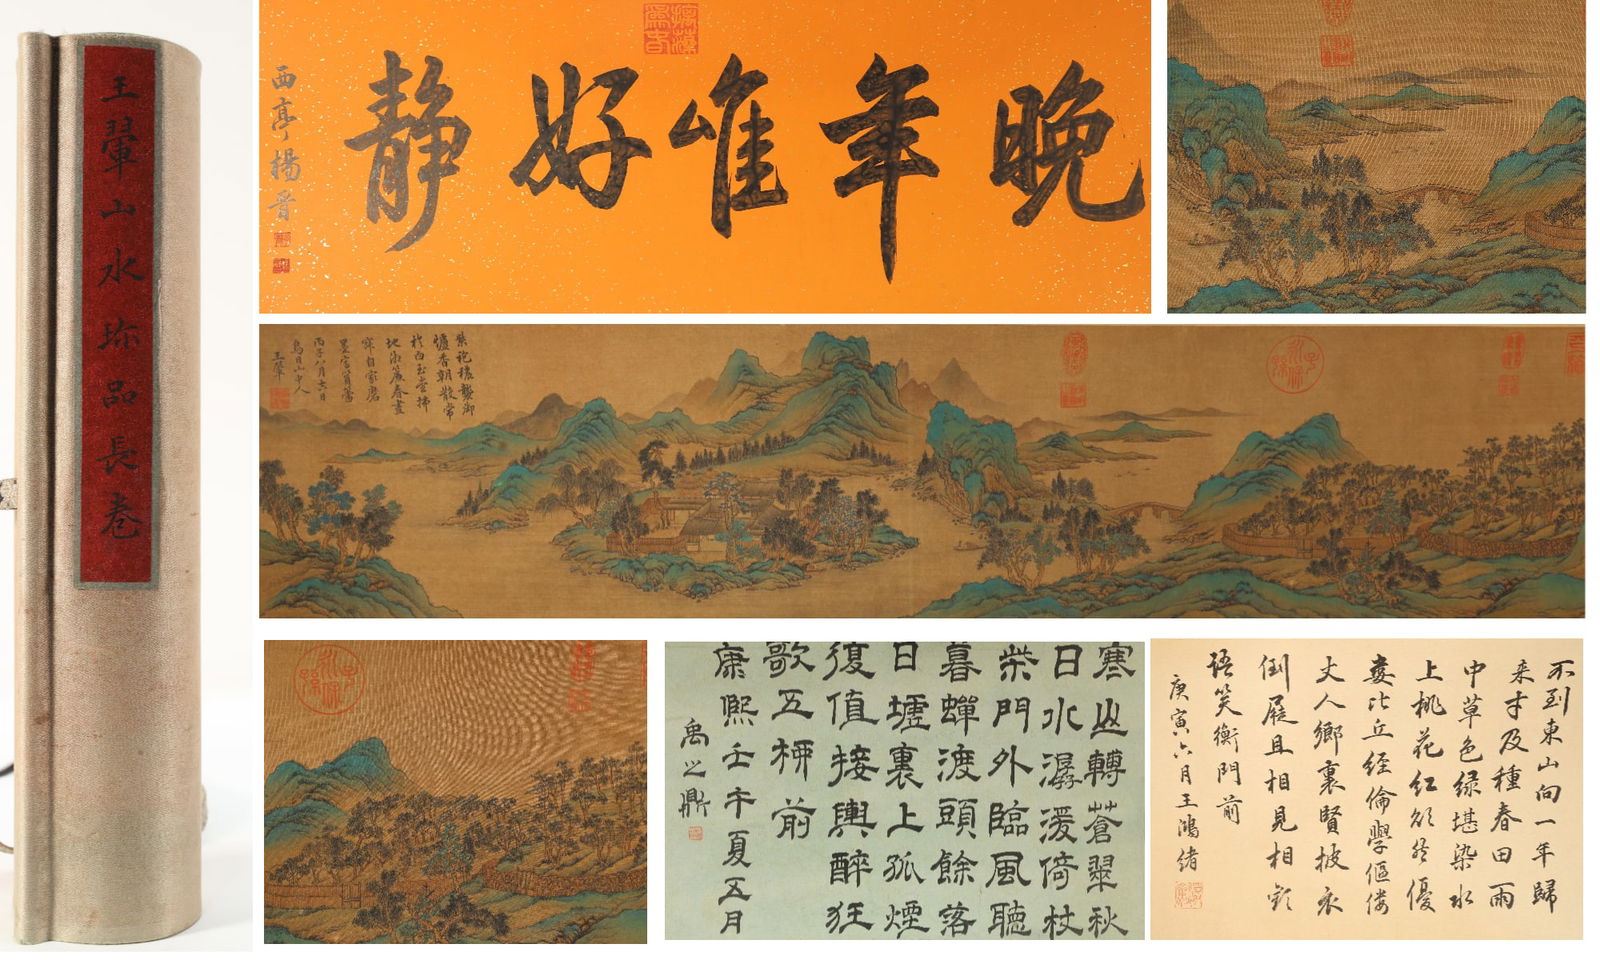 王翬山水珎品長卷
晚年唯好靜
西亭楊晉
紫袍穠襲御
爐香朝散常
於白玉堂掃
地簾春晝
自家磨
墨寫篔簹
丙子八月六日
烏目山中人
王翬
子孫永保
寒山轉蒼翠秋
日水潺湲倚杖
柴門外臨風聽
暮蟬渡頭餘落
日墟裏上孤煙
復值接輿醉狂
歌五柳前
康熙壬午夏五月
禹之鼎
不到東山向一年歸
来才及種春田雨
中草色緑堪染水
上桃花紅欲然優
婁比丘經倫學傴僂
丈人鄉裏賢披衣
倒屣且相見相歡
語笑衡門前
庚寅六月王鴻緒